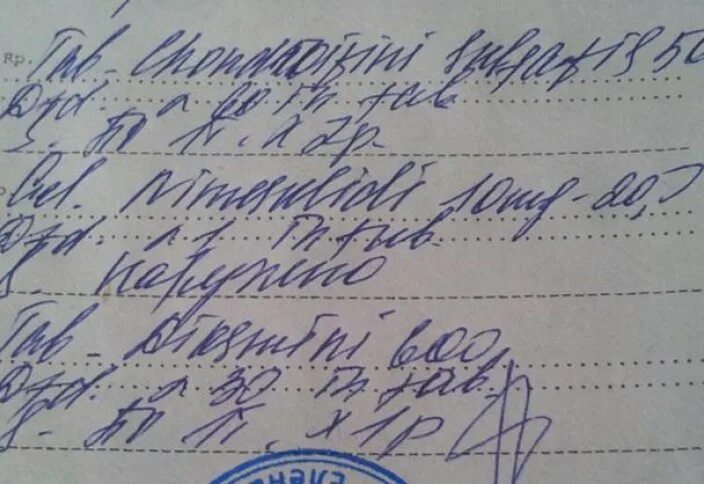 Rp. Tab. Chondroitini sulfatis 50
D.t.d. N 60 in tab
S. по 1т. х 2р.
Gel. Nimesulidi 10mg - 20,0
D.t.d. N 1 in tub.
S. наружно
Tab. 600
D.t.d. N 30 in tab.
S. по 1т. х 1р